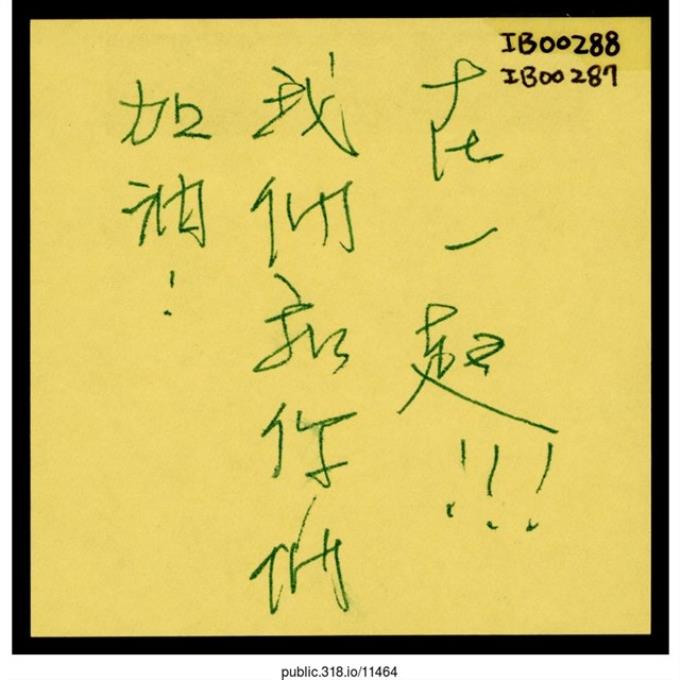 IB00288
IB00287
加油!
我們和你們
在一起!!!
public.318.io/11464